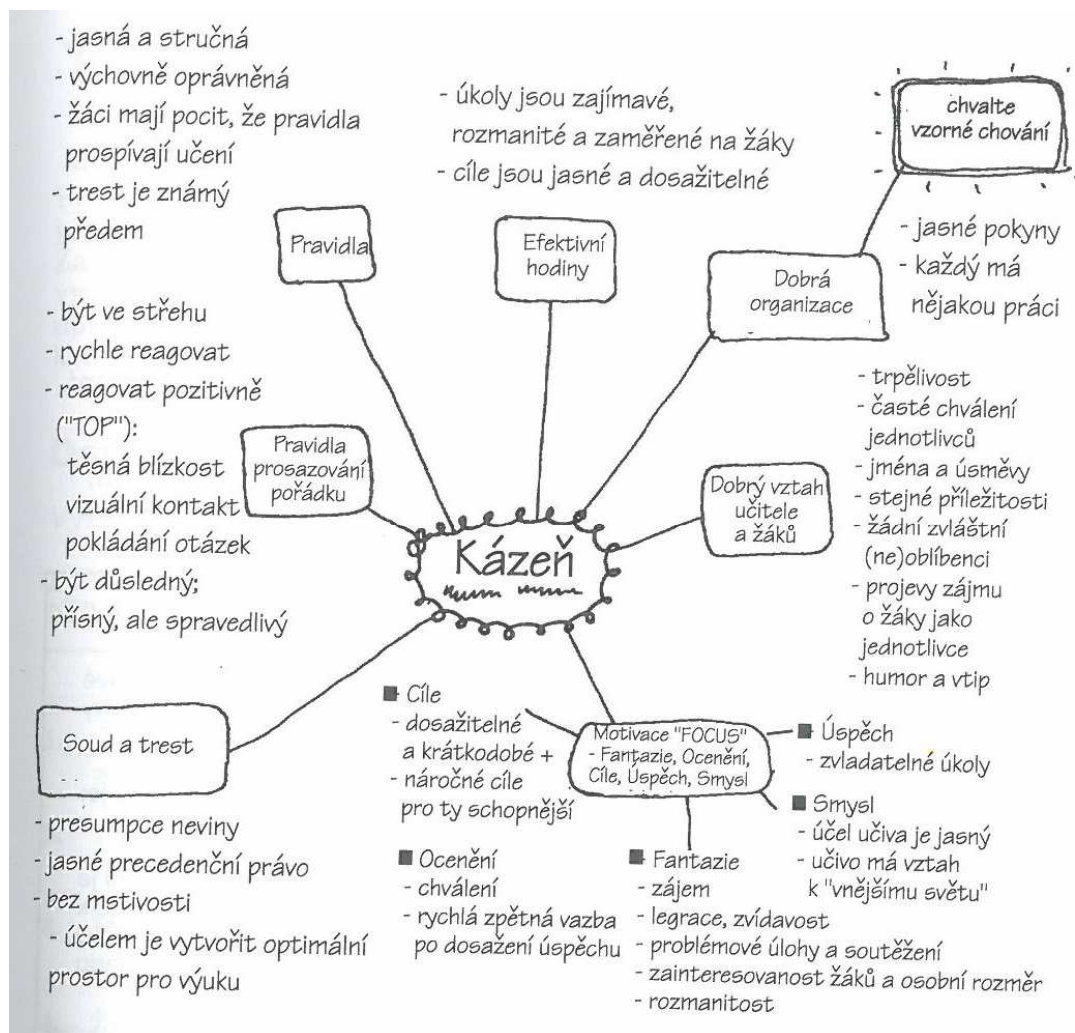 - jasná a stručná
- výchovně oprávněná
- žáci mají pocit, že pravidla
prospívají učení
- trest je známý
předem
Pravidla
- úkoly jsou zajímavé,
rozmanité a zaměřené na žáky
- cíle jsou jasné a dosažitelné
Efektivní
hodiny
chvalte
vzorné chování
Dobrá
organizace
- jasné pokyny
- každý má
nějakou práci
- být ve střehu
- rychle reagovat
- reagovat pozitivně
("TOP"):
těsná blízkost
vizuální kontakt
pokládání otázek
- být důsledný;
přísný, ale spravedlivý
Pravidla
prosazování
pořádku
Kázeň
Dobrý vztah
učitele
a žáků
- trpělivost
- časté chválení
jednotlivců
- jména a úsměvy
- stejné příležitosti
- žádní zvláštní
(ne)oblíbenci
- projevy zájmu
o žáky jako
jednotlivce
- humor a vtip
Soud a trest
- presumpce neviny
- jasné precedenční právo
- bez mstivosti
- účelem je vytvořit optimální
prostor pro výuku
Motivace "FOCUS"
- Fantazie, Ocenění,
Cíle, Úspěch, Smysl
■ Cíle
- dosažitelné
a krátkodobé +
- náročné cíle
pro ty schopnější
■ Úspěch
- zvladatelné úkoly
■ Smysl
- účel učiva je jasný
- učivo má vztah
k "vnějšímu světu"
■ Ocenění
- chválení
- rychlá zpětná vazba
po dosažení úspěchu
■ Fantazie
- zájem
- legrace, zvídavost
- problémové úlohy a soutěžení
- zainteresovanost žáků a osobní rozměr
- rozmanitost